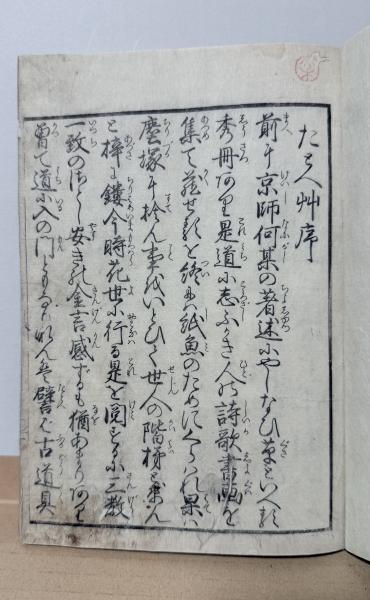 たとへ艸序
前に京師何某の著述にやしなひ草といへる
秀冊あり是道に志ふかき人の詩歌書画を
集て藏せるを終に紙魚のためにくらはれ果は
塵塚に捨ん事のいとひて世人の階梯と為ん
と梓に鏤今時花世に行る是を閲するに三教
一致のさとし安きの金言感ずるも猶あまりあり
曽て道に入の門ともなりなんを譬ば古道具